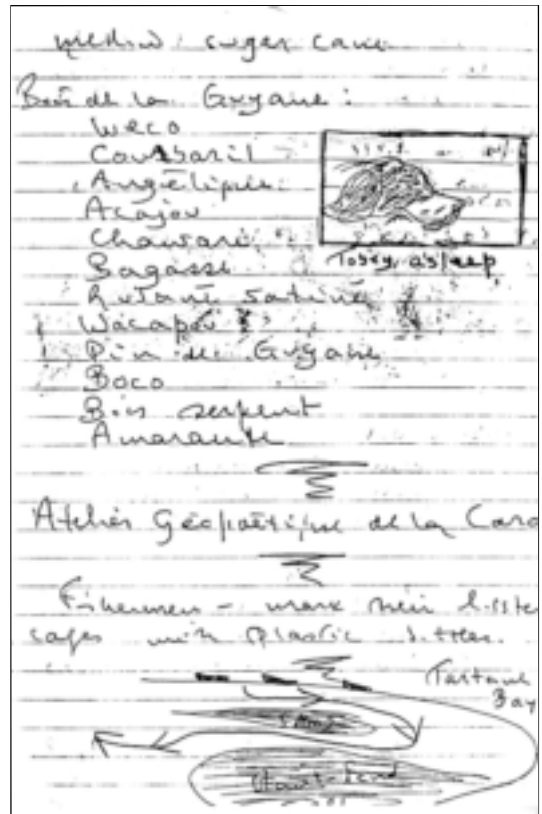 sugar cane
Bois de la Guyane :
Weco
Courbaril
Angélique
Acajou
Chawari
Bagasse
satiné
Wacapou
Pin de Guyane
Boco
Bois serpent
Amarante
Tobey, asleep
Atelier Géopoétique de la Cara
Fishermen - mark their
cages with plastic bottles.
Tartane
Bay
Sand
Haut-fond